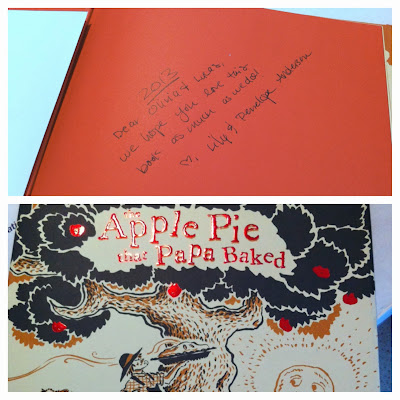 2013
Dear Olivia & Lucas,
we hope you love this
book as much as we do!
♡, Lily & Penelope Anderson
The
Apple Pie
that Papa Baked